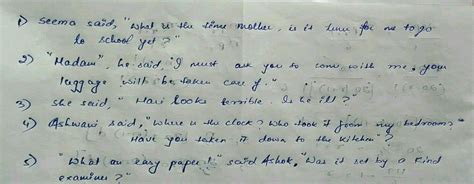 1) Seema said, "What is the time mother, is it time for me to go
to school yet?"
2) "Madam", he said, "I must ask you to come with me, your
luggage will be taken care of."
3) She said, "Hari looks terrible. Is he ill?"
4) Ashwani said, "Where is the clock? Who took it from my bedroom?
Have you taken it down to the kitchen"?
5) "What an easy paper!" said Ashok, "Was it set by a kind
examiner?"